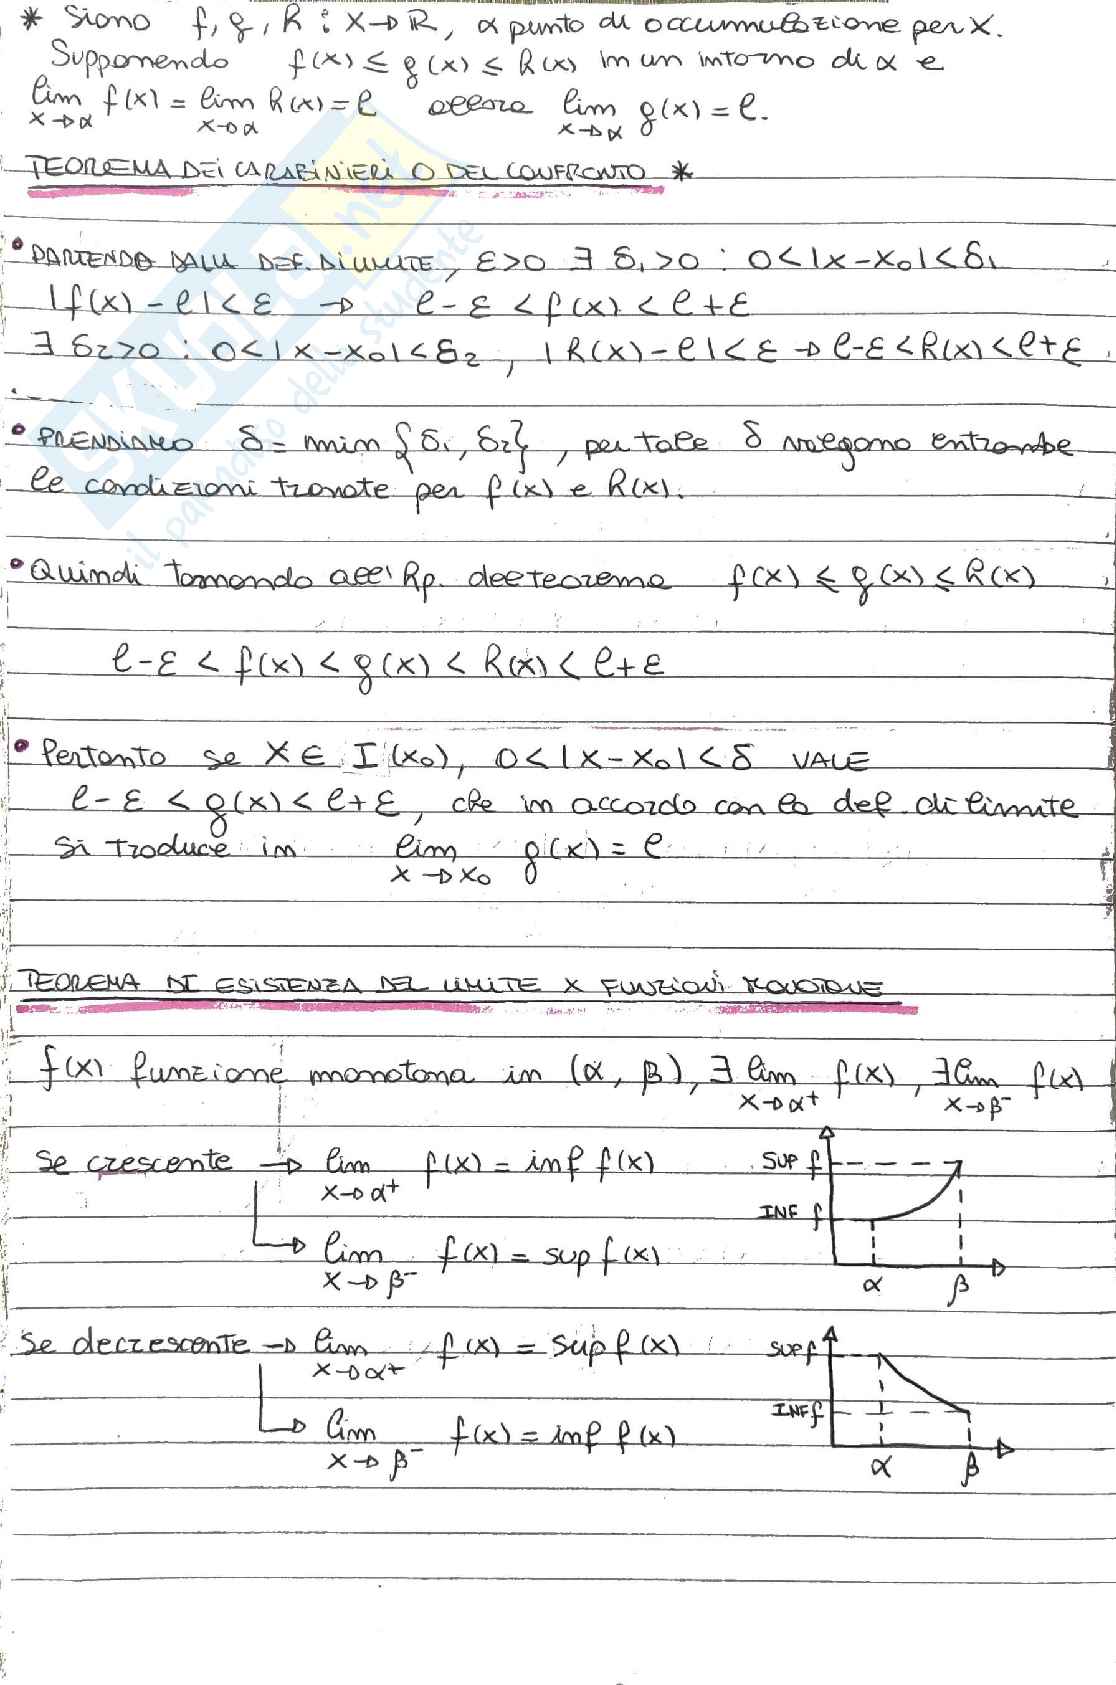 * Siano f, g, h : X→R, α punto di accumulazione per X.
Supponendo f(x) ≤ g(x) ≤ h(x) in un intorno di α e
lim x→α f(x) = lim x→α h(x) = l allora lim x→α g(x) = l.
TEOREMA DEI CARABINIERI O DEL CONFRONTO *
• PARTENDO DALLA DEF. DI LIMITE, ε>0 ∃ δ₁>0 : 0<|x-x₀|<δ₁
|f(x) - l| < ε → l-ε < f(x) < l+ε
∃ δ₂>0 : 0<|x-x₀|<δ₂, |h(x)-l|<ε → l-ε<h(x)<l+ε
• PRENDIAMO δ = min {δ₁, δ₂}, per tale δ valgono entrambe
le condizioni trovate per f(x) e h(x).
• Quindi tornando all'hp. del teorema f(x) ≤ g(x) ≤ h(x)
l-ε < f(x) < g(x) < h(x) < l+ε
• Pertanto se x ∈ I(x₀), 0<|x-x₀|<δ VALE
l-ε < g(x) < l+ε, che in accordo con la def. di limite
si traduce in lim x→x₀ g(x) = l
TEOREMA DI ESISTENZA DEL LIMITE X FUNZIONI MONOTONE
f(x) funzione monotona in (α, β), ∃ lim x→α⁺ f(x), ∃ lim x→β⁻ f(x)
se crescente → lim x→α⁺ f(x) = inf f(x)
→ lim x→β⁻ f(x) = sup f(x)
SUP f
INF f
α β
se decrescente → lim x→α⁺ f(x) = sup f(x)
→ lim x→β⁻ f(x) = inf f(x)
SUP f
INF f
α β
SKUOLA.net
il paradiso dello studente